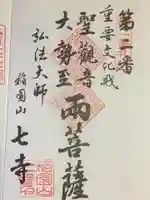 第二番
重要文化財
聖觀音
大勢至
兩菩薩
弘法大師
稲園山
七寺